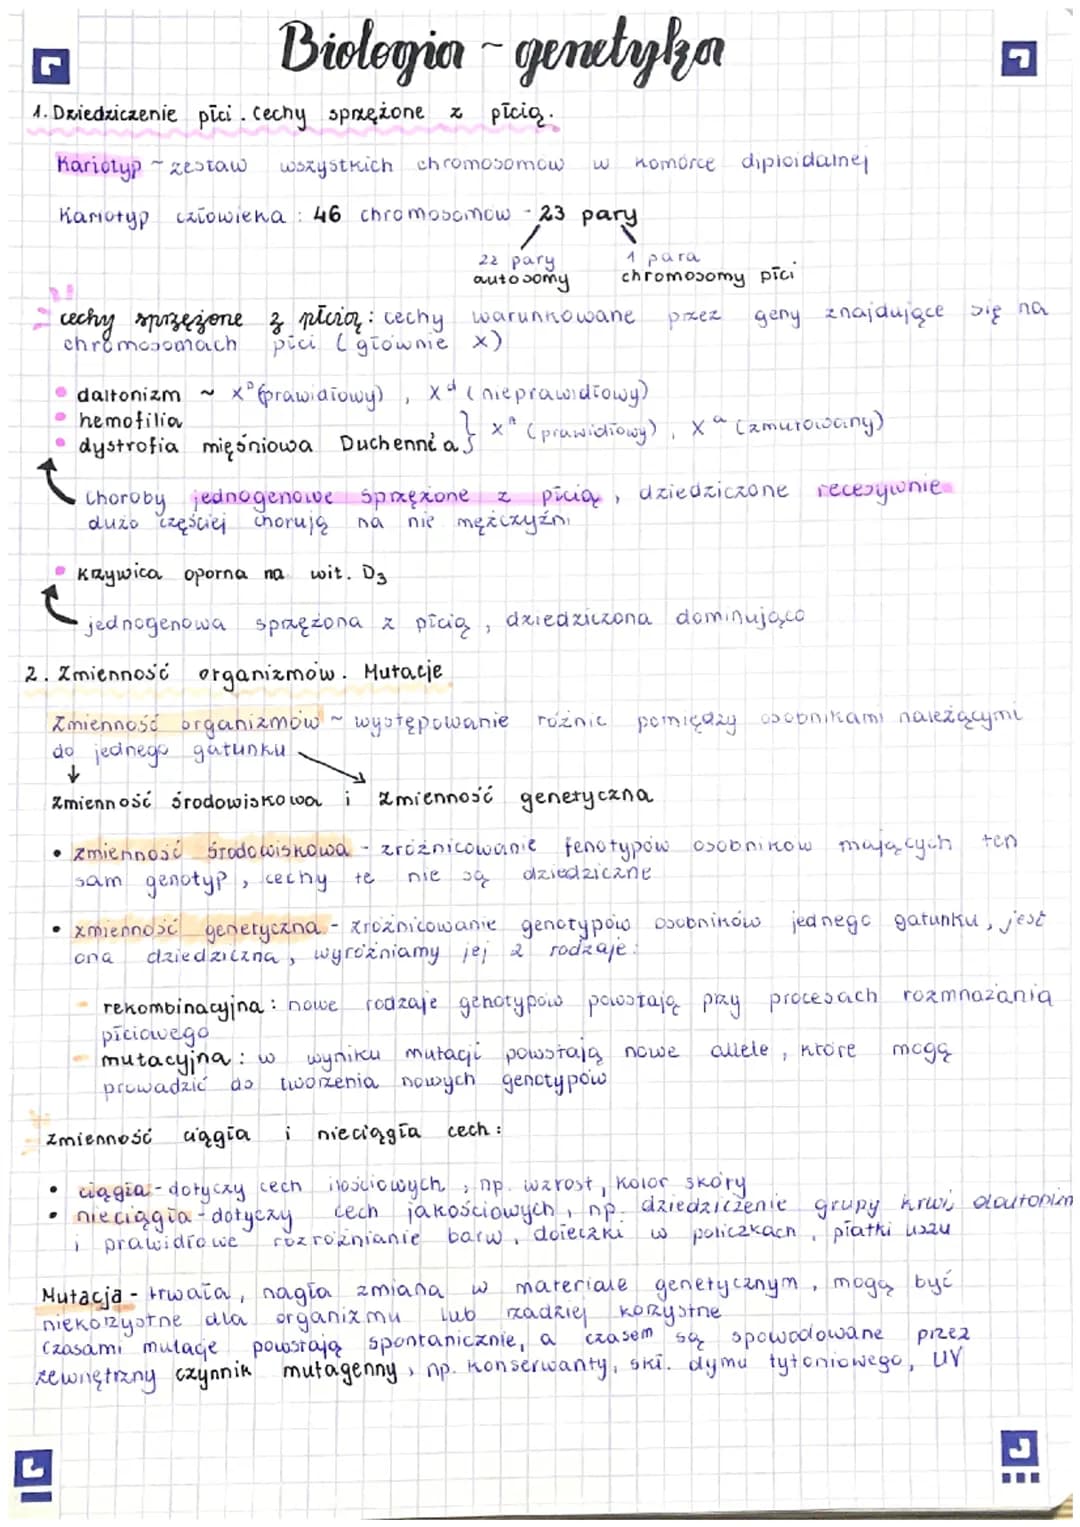 Biologia ~ genetyka
1. Dziedziczenie płci. Cechy sprzężone z płcią.
Kariotyp ~ zestaw wszystkich chromosomów w komórce diploidalnej
Kariotyp człowieka : 46 chromosomów - 23 pary
22 pary autosomy
1 para chromosomy płci
cechy sprzężone z płcią: cechy warunkowane przez geny znajdujące się na
chromosomach płci (głównie X)
• daltonizm ~ Xᴰ (prawidłowy), Xᵈ (nieprawidłowy)
• hemofilia
• dystrofia mięśniowa Duchenne'a } Xᴬ (prawidłowy), Xᵃ (zmutowany)
choroby jednogenowe sprzężone z płcią, dziedziczone recesywnie
dużo częściej chorują na nie mężczyźni
• krzywica oporna na wit. D₃
jednogenowa sprzężona z płcią, dziedziczona dominująco
2. Zmienność organizmów. Mutacje
Zmienność organizmów ~ występowanie różnic pomiędzy osobnikami należącymi
do jednego gatunku
zmienność środowiskowa i zmienność genetyczna
• zmienność środowiskowa - zróżnicowanie fenotypów osobników mających ten
sam genotyp, cechy te nie są dziedziczne
• zmienność genetyczna - zróżnicowanie genotypów osobników jednego gatunku, jest
ona dziedziczna, wyróżniamy jej 2 rodzaje:
- rekombinacyjna: nowe rodzaje genotypów powstają przy procesach rozmnażania
płciowego
- mutacyjna: w wyniku mutacji powstają nowe allele, które mogą
prowadzić do tworzenia nowych genotypów
zmienność ciągła i nieciągła cech:
• ciągła - dotyczy cech ilościowych, np. wzrost, kolor skóry
• nieciągła - dotyczy cech jakościowych, np. dziedziczenie grupy krwi,
i prawidłowe rozróżnianie barw, dołeczki w policzkach, płatki uszu
Mutacja - trwała, nagła zmiana w materiale genetycznym, mogą być
niekorzystne dla organizmu lub rzadziej korzystne
Czasami mutacje powstają spontanicznie, a czasem są spowodowane przez
zewnętrzny czynnik mutagenny, np. konserwanty, skł. dymu tytoniowego, UV